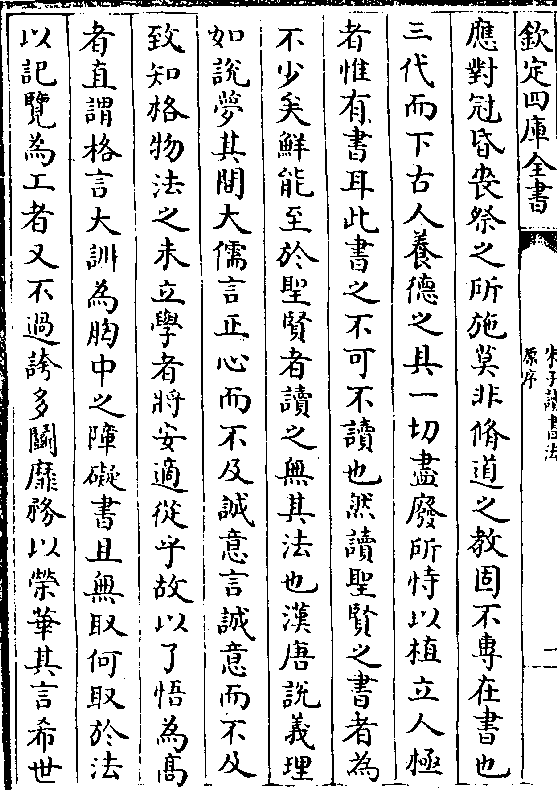 欽定四庫全書
朱子讀書法
原序
一
應對冠昏喪祭之所施莫非脩道之教固不專在書也
三代而下古人養德之具一切盡廢所恃以植立人極
者惟有書耳此書之不可不讀也然讀聖賢之書者為
不少矣鮮能至於聖賢者讀之無其法也漢唐說義理
如說夢其間大儒言正心而不及誠意言誠意而不及
致知格物法之未立學者將安適從乎故以了悟為髙
者直謂格言大訓為胸中之障礙書且無取何取於法
以記覽為工者又不過誇多鬭靡務以榮華其言希世